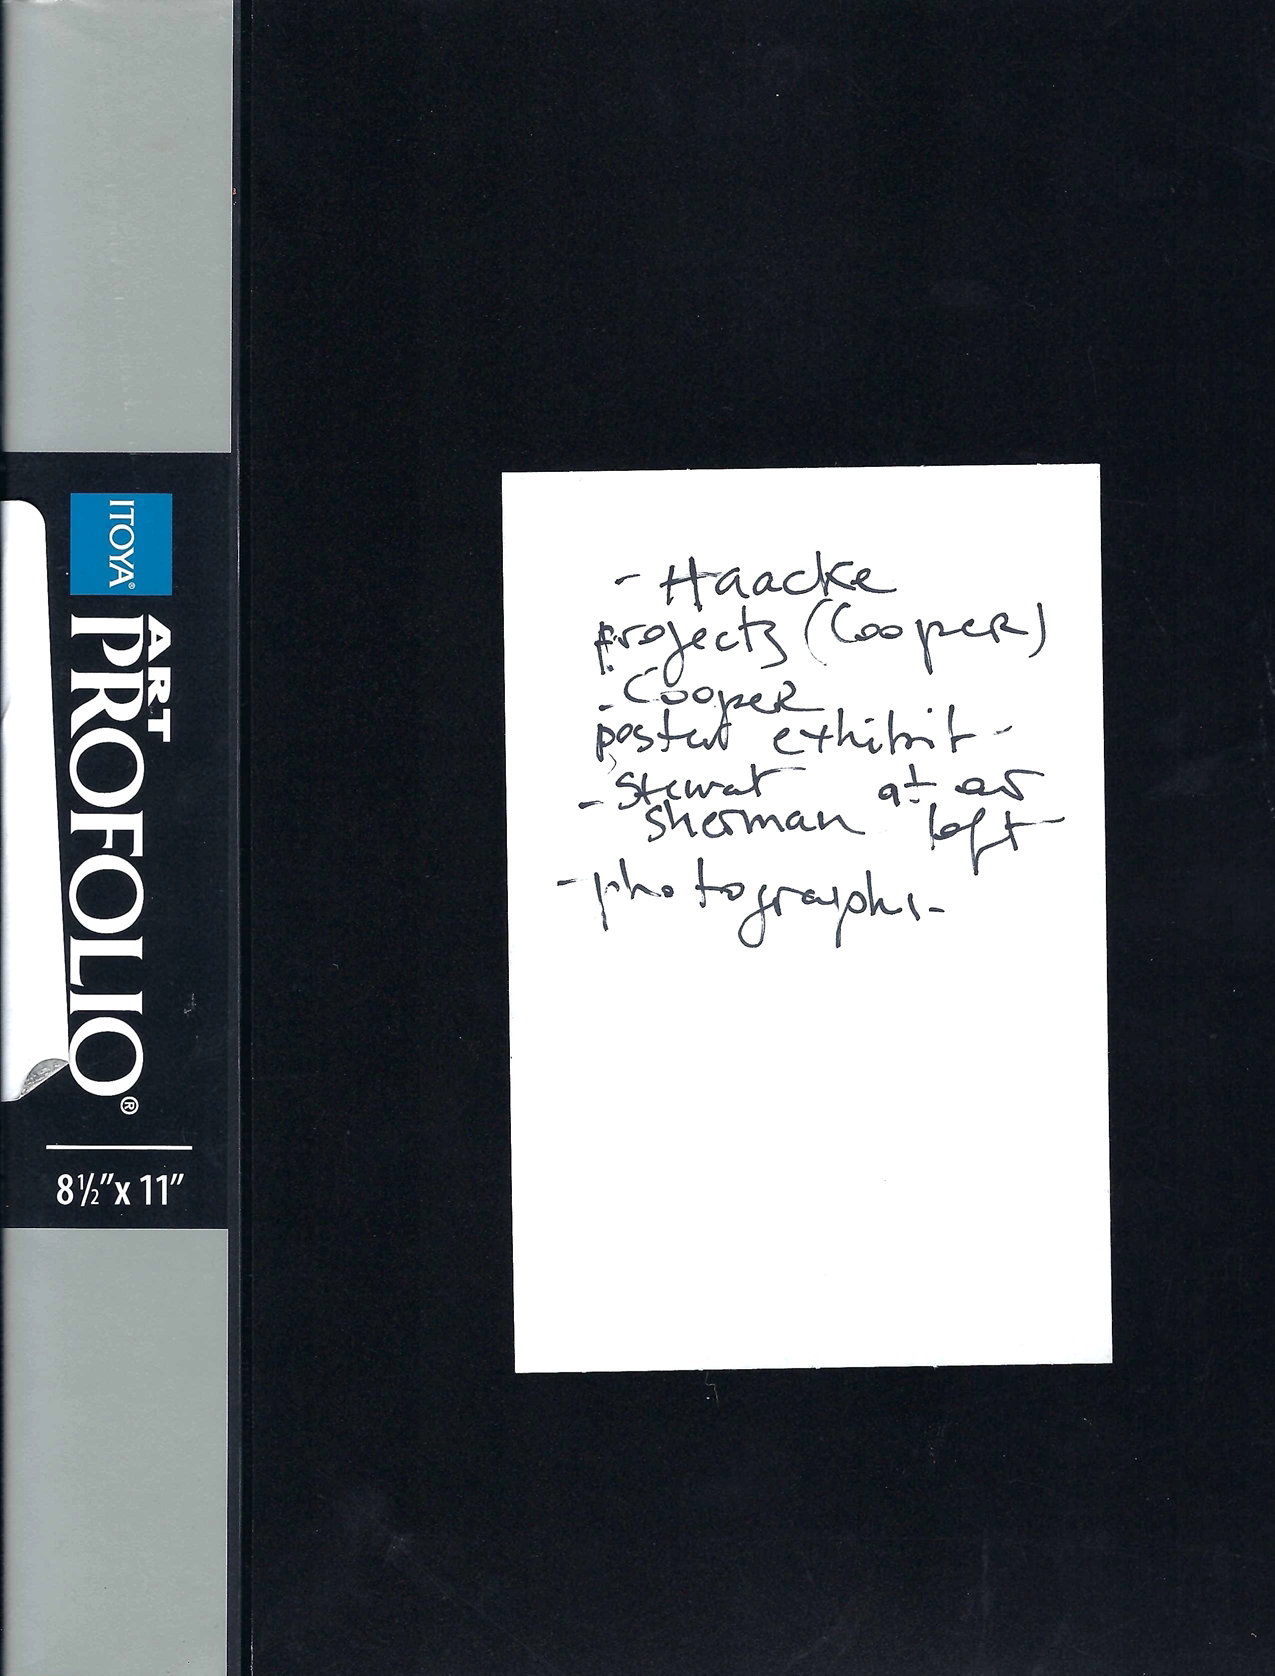 ITOYA®
ART
PROFOLIO®
8½"x 11"
- Haacke
projects (Cooper)
- Cooper
poster exhibit -
- Stewart at our
Sherman loft
- photographs -